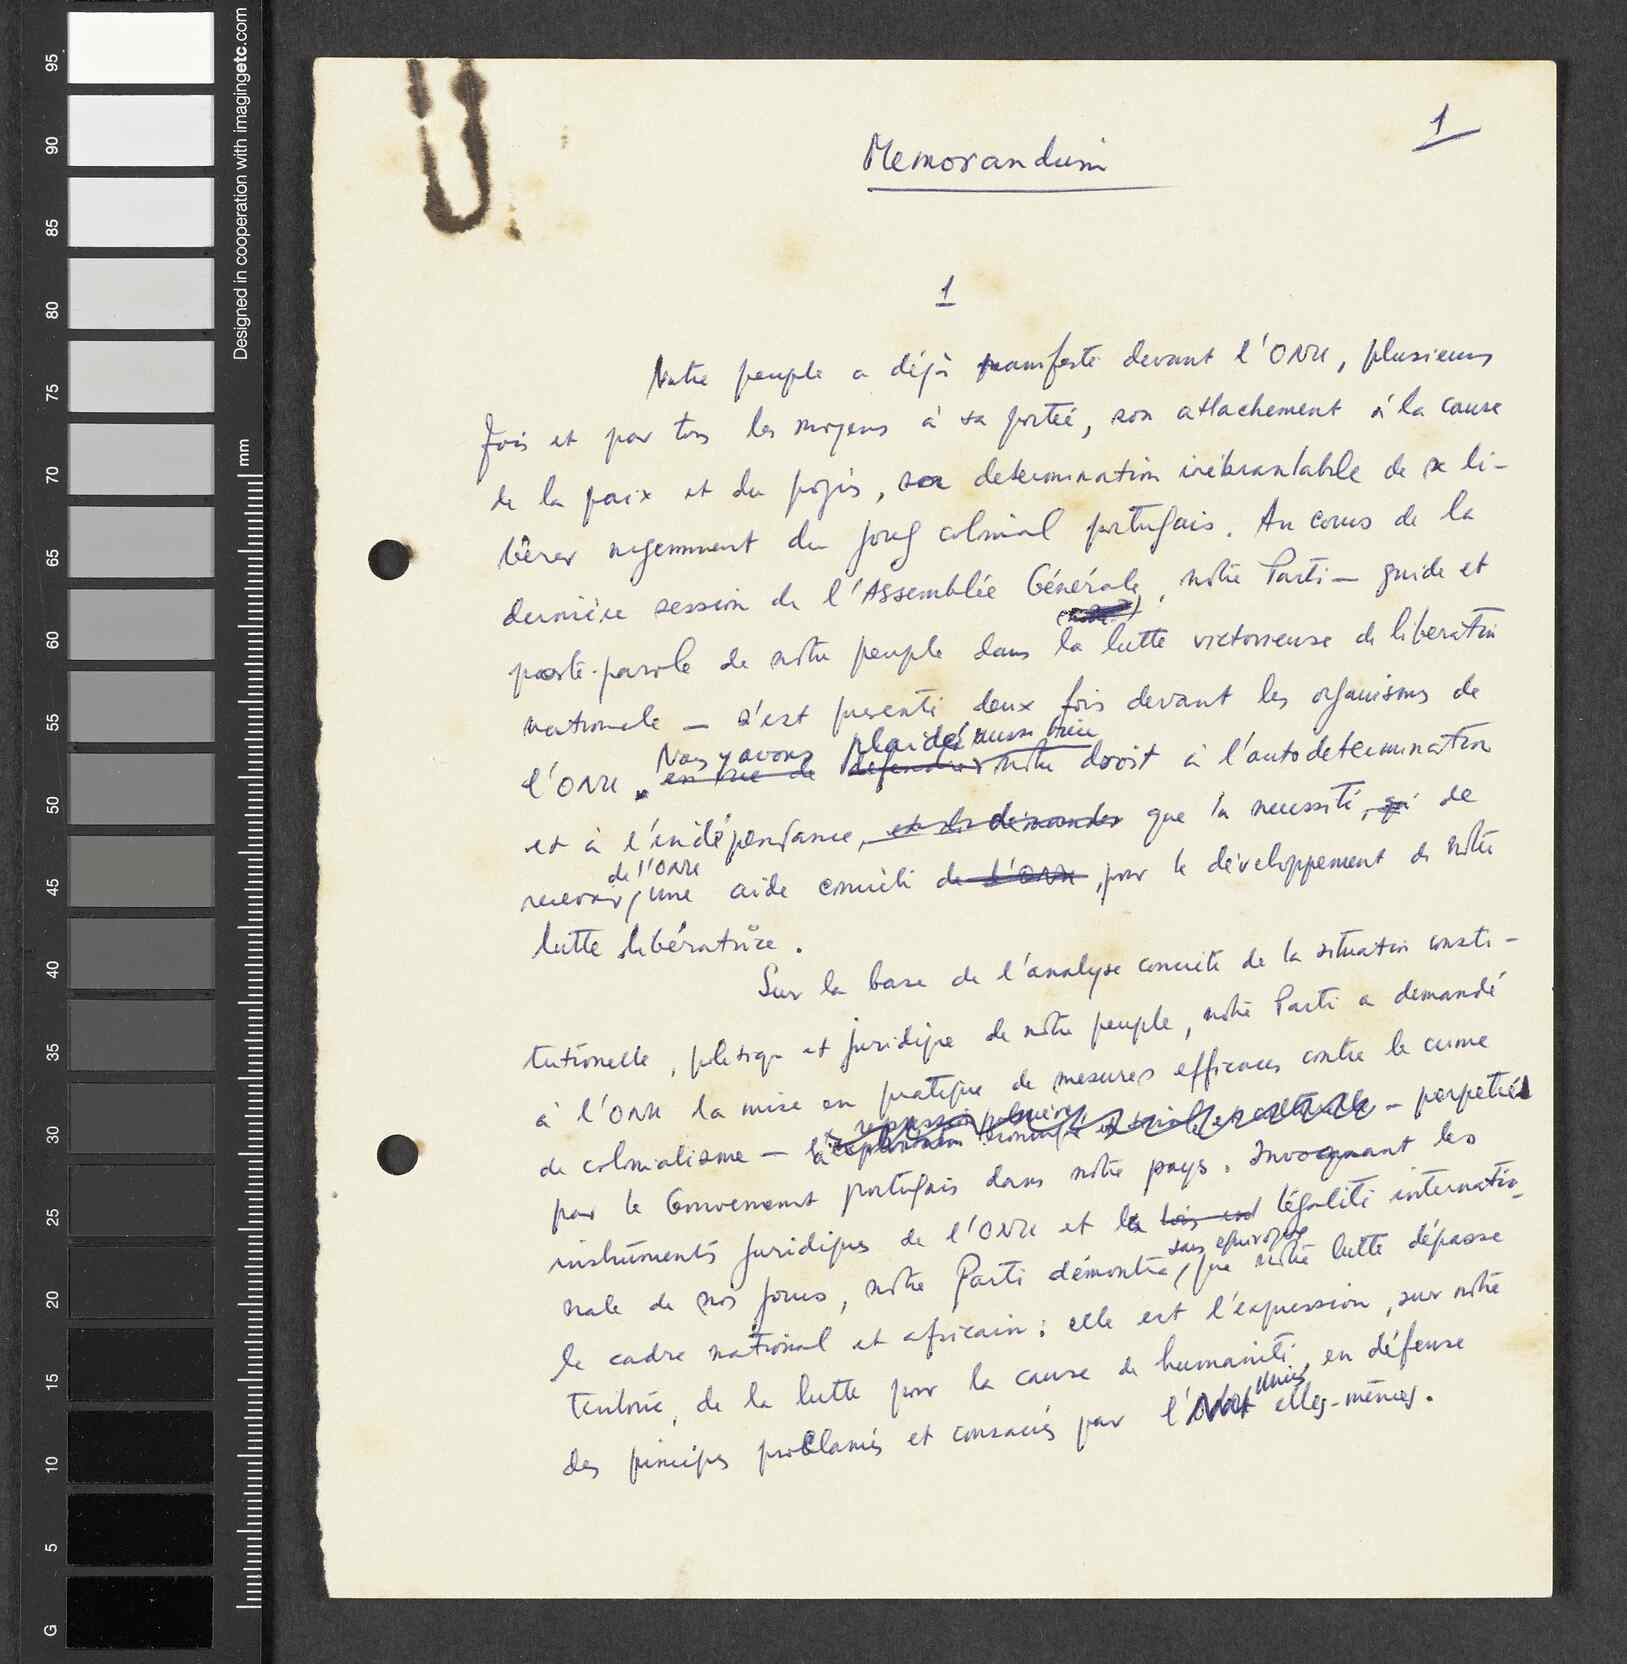 1
Memorandum
1
Notre peuple a déjà manifesté devant l'ONU, plusieurs
fois et par tous les moyens à sa portée, son attachement à la cause
de la paix et du progrès, sa determination inébranlable de se li-
bérer urgemment du joug colonial portugais. Au cours de la
dernière session de l'Assemblée Générale, notre Parti — guide et
porte-parole de notre peuple dans la lutte victorieuse de liberation
nationale — s'est présenté deux fois devant les organismes de
Nous y avons plaidé aussi bien
l'ONU. en vue de défendre notre droit à l'autodetermination
et à l'indépendance, et de demander que la necessité, de
de l'ONU
recevoir une aide concrète de l'ONU, pour le développement de notre
lutte libératrice.
Sur la base de l'analyse concrète de la situation consti-
tutionelle, politique et juridique de notre peuple, notre Parti a demandé
à l'ONU la mise en pratique de mesures efficaces contre le crime
de colonialisme — — perpetré
par le Gouvernement portugais dans notre pays. Invoquant les
instruments juridiques de l'ONU et la légalité internatio-
sans équivoque
nale de nos jours, notre Parti démontra que notre lutte dépasse
le cadre national et africain: elle est l'expression, sur notre
territoire, de la lutte pour la cause de humanité, en défense
Unies
des principes proclamés et consacrés par elles-mêmes.
Designed in cooperation with imagingetc.com
mm
95
90
85
80
75
70
65
60
55
50
45
40
35
30
25
20
15
10
5
G